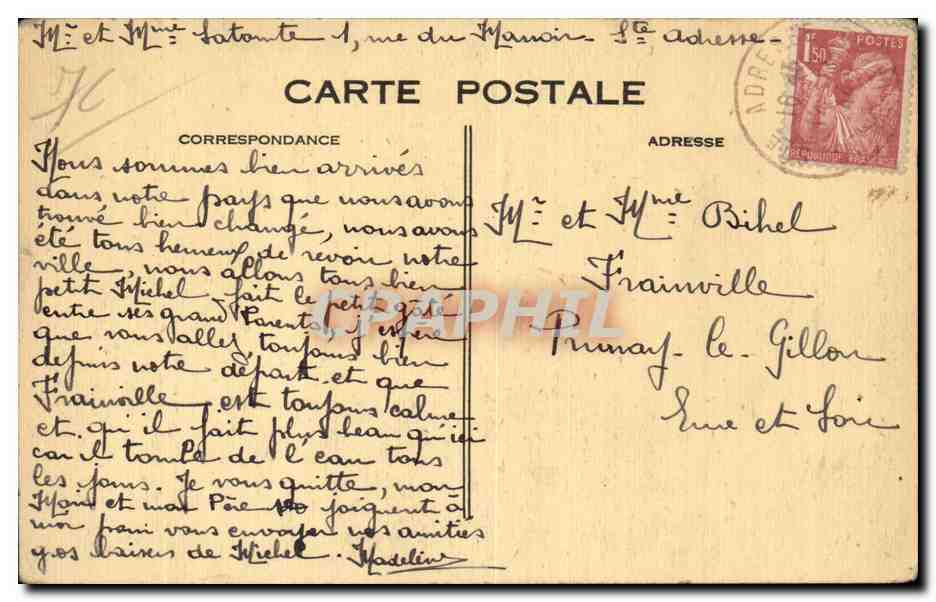 Mr et Mme Latomte 1, rue du Manoir Ste Adresse-
CARTE POSTALE
CORRESPONDANCE
Nous sommes bien arrivés
dans notre pays que nous avons
trouvé bien changé, nous avons
été tous heureux de revoir notre
ville, nous allons tous bien
petit Michel fait le petit gâté
entre ses grand Parents, j'espère
que vous allez toujours bien
depuis notre départ et que
Frainville est toujours calme
et qu'il fait plus beau qu'ici
car il tombe de l'eau tous
les jours. Je vous quitte, mon
Mari et mon Père joignent à
moi pour vous envoyer nos amitiés
gros baisers de Michel. Madeleine
ADRESSE
Mr et Mme Bihel
Frainville
Prunay-le-Gillon
Eure et Loir
1F50
POSTES
REPUBLIQUE FRANCAISE
ADRE
CPAPHIL